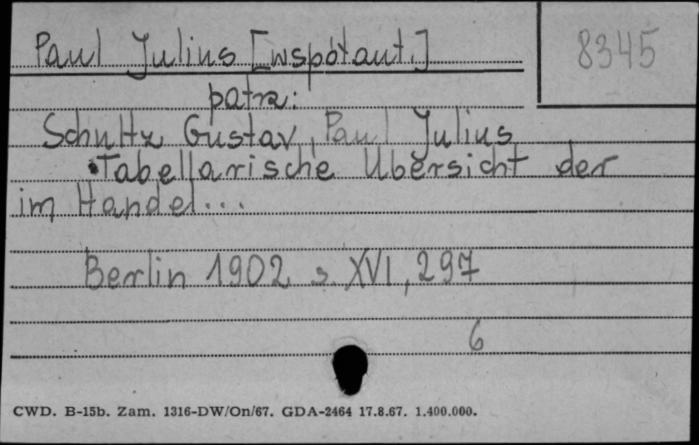 Paul Julius [współaut.]
8345
patrz:
Schultz Gustav, Paul Julius
Tabellarische Übersicht der
im Handel...
Berlin 1902 s. XVI, 297
6
CWD. B-15b. Zam. 1316-DW/On/67. GDA-2464 17.8.67. 1.400.000.